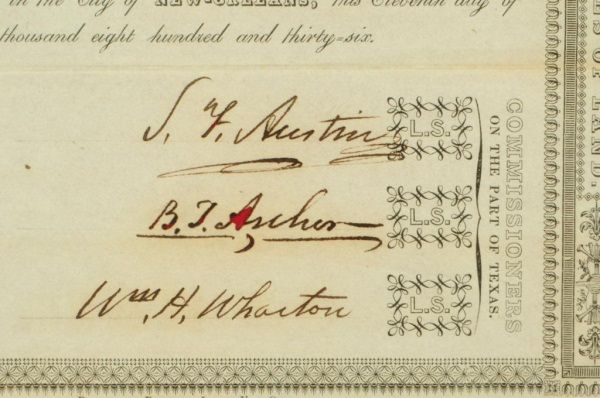 in the City of NEW-ORLEANS, this Eleventh day of
thousand eight hundred and thirty=six.
S. F. Austin
L.S.
B. T. Archer
L.S.
Wm. H. Wharton
L.S.
COMMISSIONERS
ON THE PART OF TEXAS.
ES OF LAND.